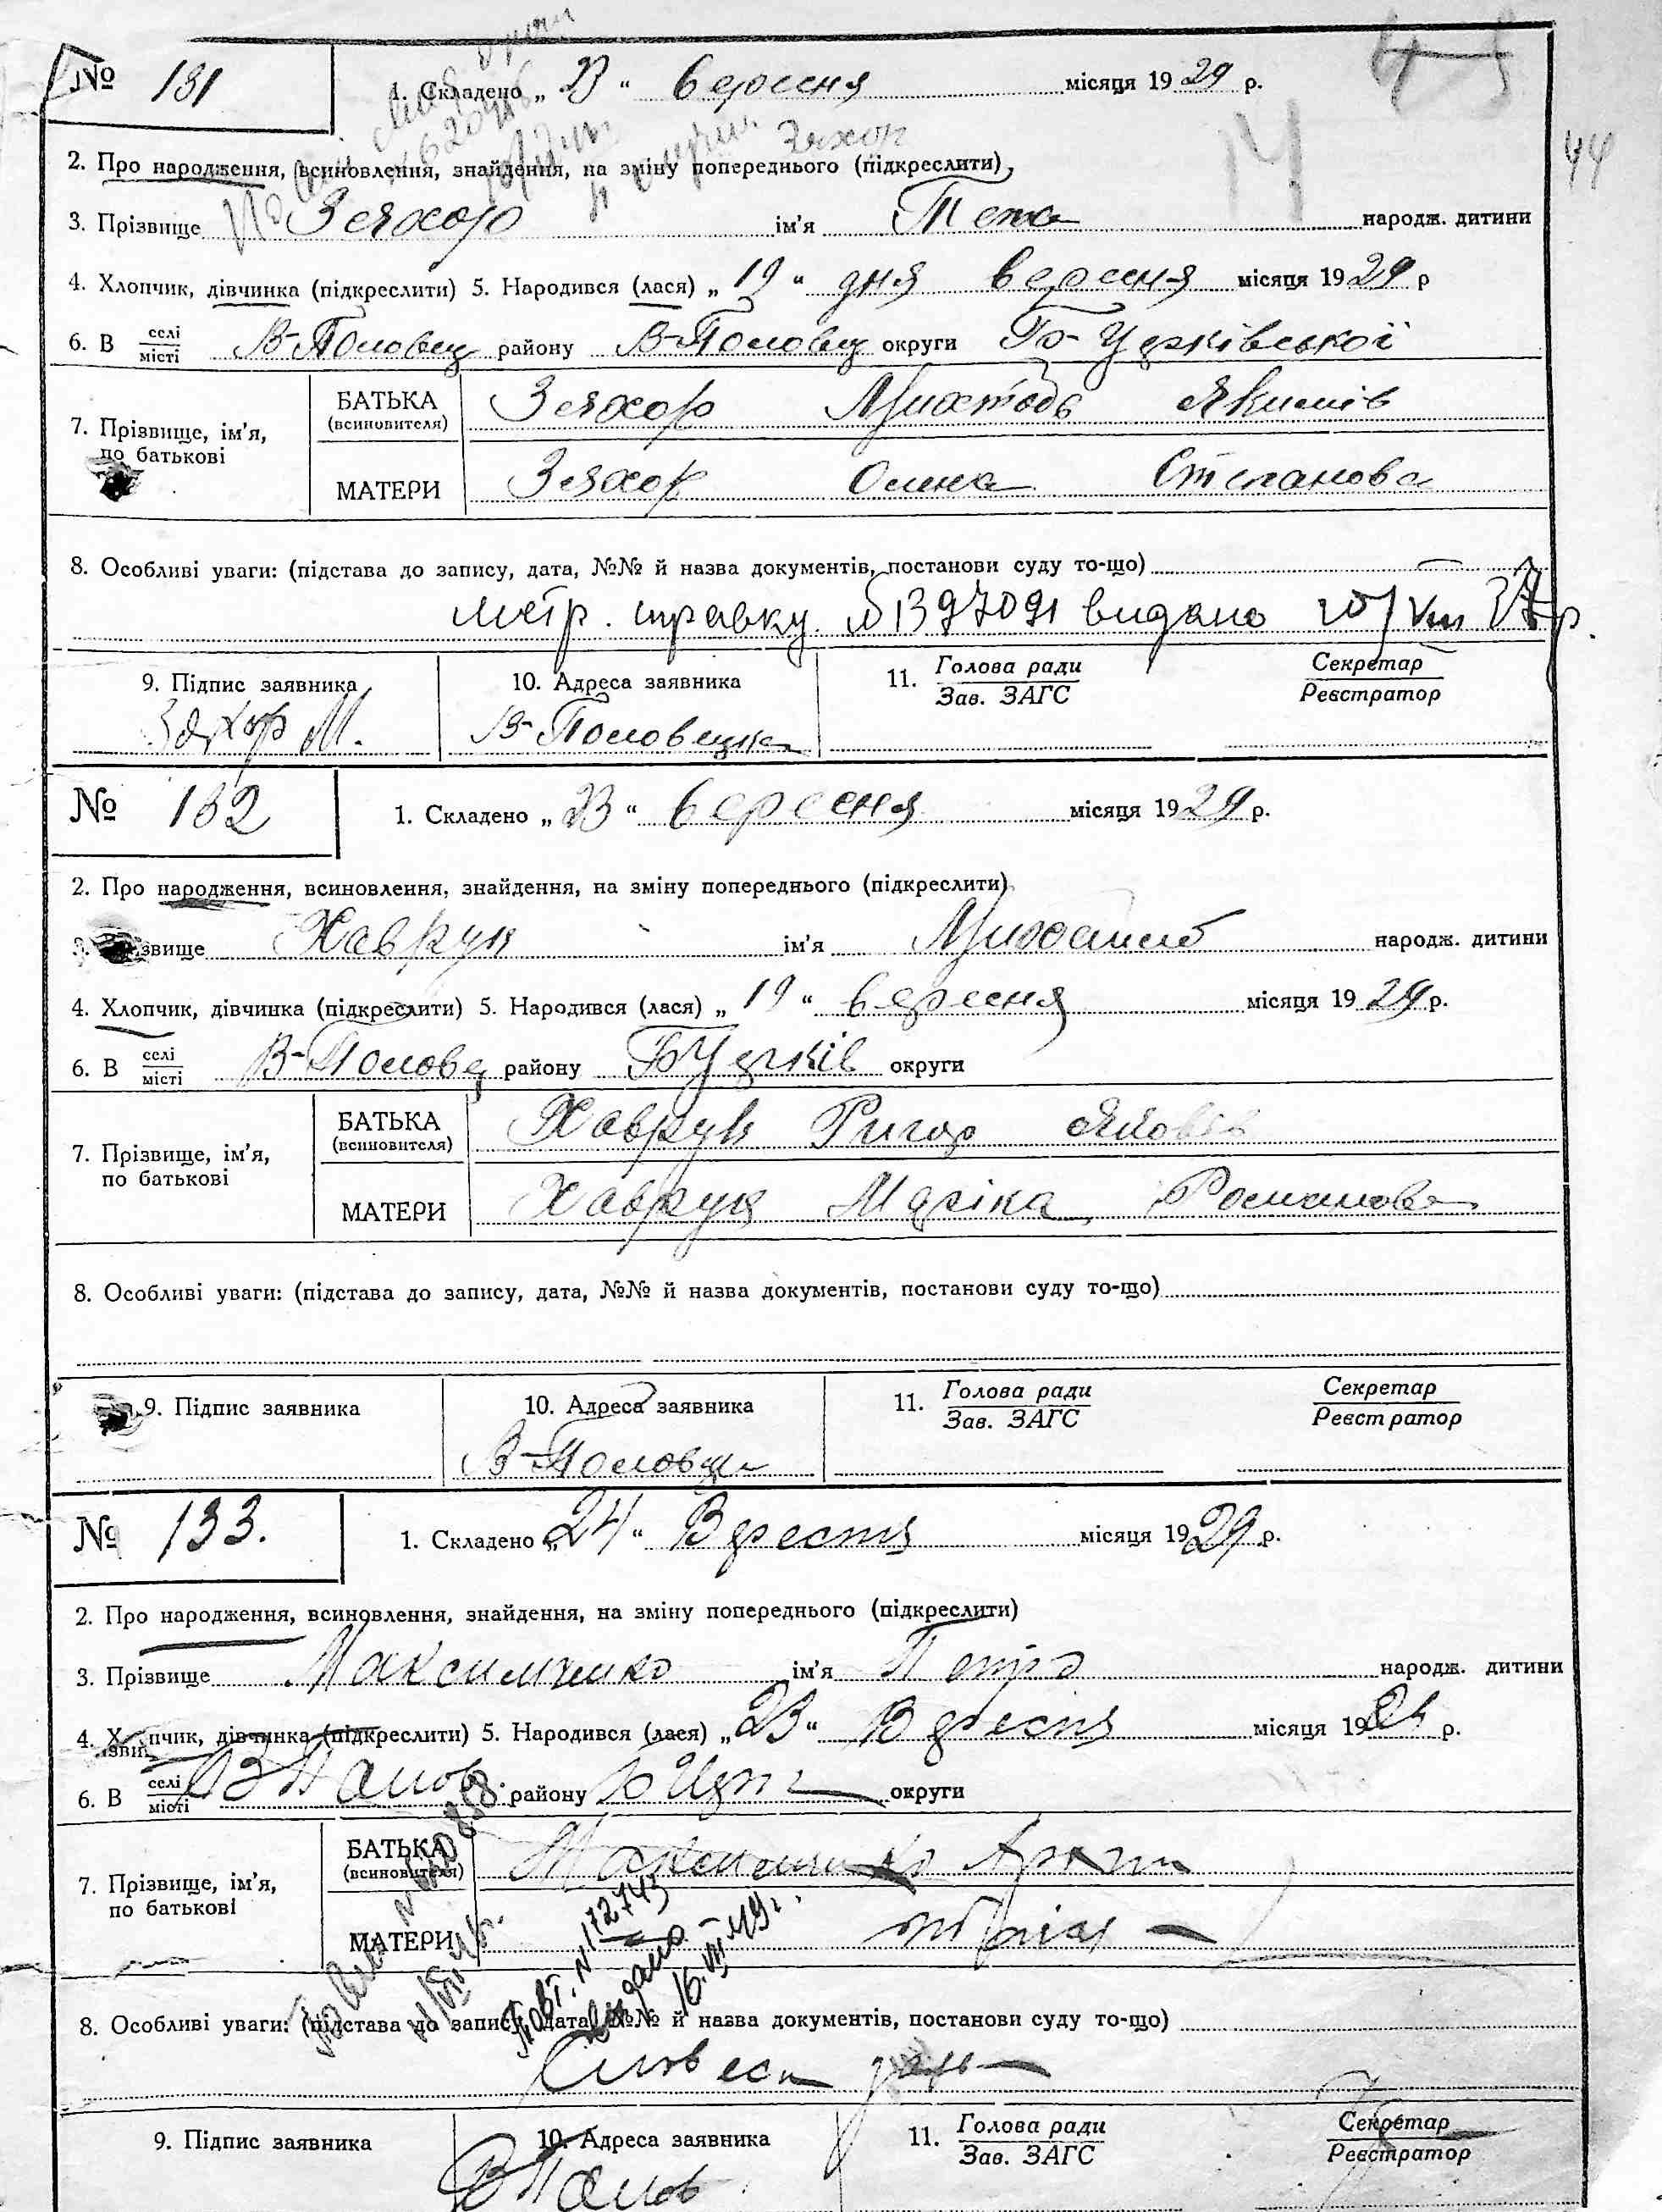 № 131 1. Складено „ 23 “ вересня місяця 19 29 р.
44
Захор
2. Про народження, всиновлення, знайдення, на зміну попереднього (підкреслити)
3. Прізвище Захор ім'я народж. дитини
4. Хлопчик, дівчинка (підкреслити) 5. Народився (лася) „ 19 “ дня вересня місяця 19 29 р
6. В селі/місті В-Половец району В-Половец округи Б-Церківської
7. Прізвище, ім'я, по батькові
БАТЬКА (всиновителя) Захор Якимів
МАТЕРИ Захор Олена Степанова
8. Особливі уваги: (підстава до запису, дата, №№ й назва документів, постанови суду то-що)
метр. справку № 1397091 видано VIII 37 р.
9. Підпис заявника 10. Адреса заявника 11. Голова ради/Зав. ЗАГС Секретар/Реєстратор
Захор М. В-Половецька
№ 132 1. Складено „ 23 “ вересня місяця 19 29 р.
2. Про народження, всиновлення, знайдення, на зміну попереднього (підкреслити)
3. звище Хаврук ім'я Михайло народж. дитини
4. Хлопчик, дівчинка (підкреслити) 5. Народився (лася) „ 19 “ вересня місяця 19 29 р.
6. В селі/місті В-Половец району БЦерків округи
7. Прізвище, ім'я, по батькові
БАТЬКА (всиновителя) Хаврук Ригор
МАТЕРИ Хаврук Маріка Романова
8. Особливі уваги: (підстава до запису, дата, №№ й назва документів, постанови суду то-що)
9. Підпис заявника 10. Адреса заявника 11. Голова ради/Зав. ЗАГС Секретар/Реєстратор
В-Половци
№ 133. 1. Складено „ 24 “ Вересня місяця 19 29 р.
2. Про народження, всиновлення, знайдення, на зміну попереднього (підкреслити)
3. Прізвище Максимченко ім'я Петро народж. дитини
4. Хлопчик, дівчинка (підкреслити) 5. Народився (лася) „ 23 “ Вересня місяця 19 29 р.
6. В селі/місті В Полов. району округи
7. Прізвище, ім'я, по батькові
БАТЬКА (всиновителя) Максимченко
МАТЕРИ
Повт. № 172743
видано
16.VII 49 г.
8. Особливі уваги: (підстава до запису, дата, №№ й назва документів, постанови суду то-що)
9. Підпис заявника 10. Адреса заявника 11. Голова ради/Зав. ЗАГС Секретар/Реєстратор
В Полов